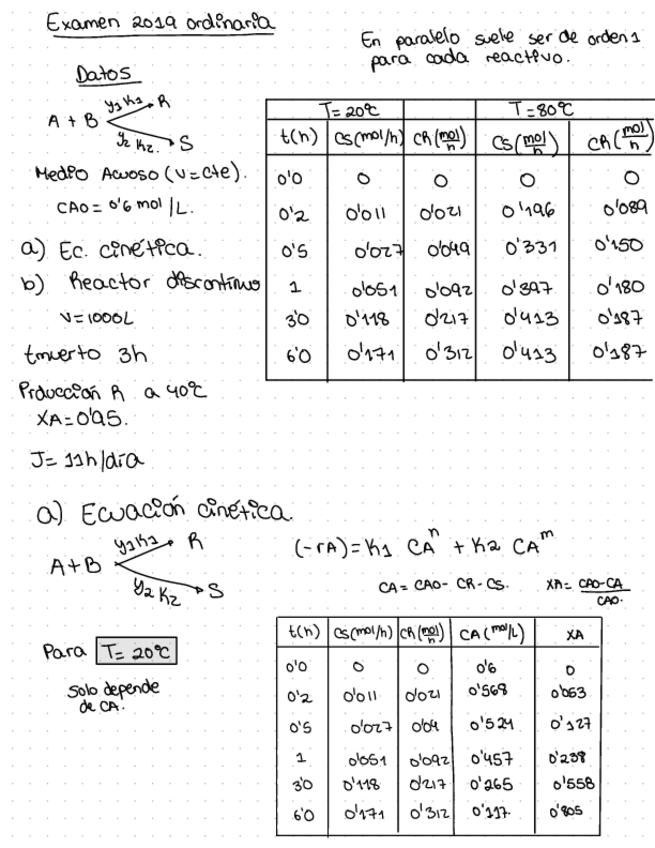 Examen 2019 ordinaria
En paralelo suele ser de orden 1
para cada reactivo.
Datos
A + B
y1 K1 R
y2 K2 S
Medio Acuoso (V=cte).
CA0 = 0'6 mol/L.
a) Ec. cinética.
b) Reactor discontinuo
V=1000L
tmuerto 3h
Producción R a 40ºC
XA=0'95.
J= 11h/día
T=20ºC T=80ºC
t(h) CS(mol/h) CR(mol/h) CS(mol/h) CR(mol/h)
0'0 0 0 0 0
0'2 0'011 0'021 0'196 0'089
0'5 0'027 0'049 0'331 0'150
1 0'051 0'092 0'397 0'180
3'0 0'118 0'217 0'413 0'187
6'0 0'171 0'312 0'413 0'187
a) Ecuación cinética.
A+B
y1 K1 R
y2 K2 S
(-rA)=K1 CA^n + K2 CA^m
CA= CA0- CR- CS. XA= CA0-CA / CA0.
Para T= 20ºC
Solo depende
de CA.
t(h) CS(mol/h) CR(mol/h) CA(mol/L) XA
0'0 0 0 0'6 0
0'2 0'011 0'021 0'568 0'053
0'5 0'027 0'04 0'524 0'127
1 0'051 0'092 0'457 0'238
3'0 0'118 0'217 0'265 0'558
6'0 0'171 0'312 0'117 0'805